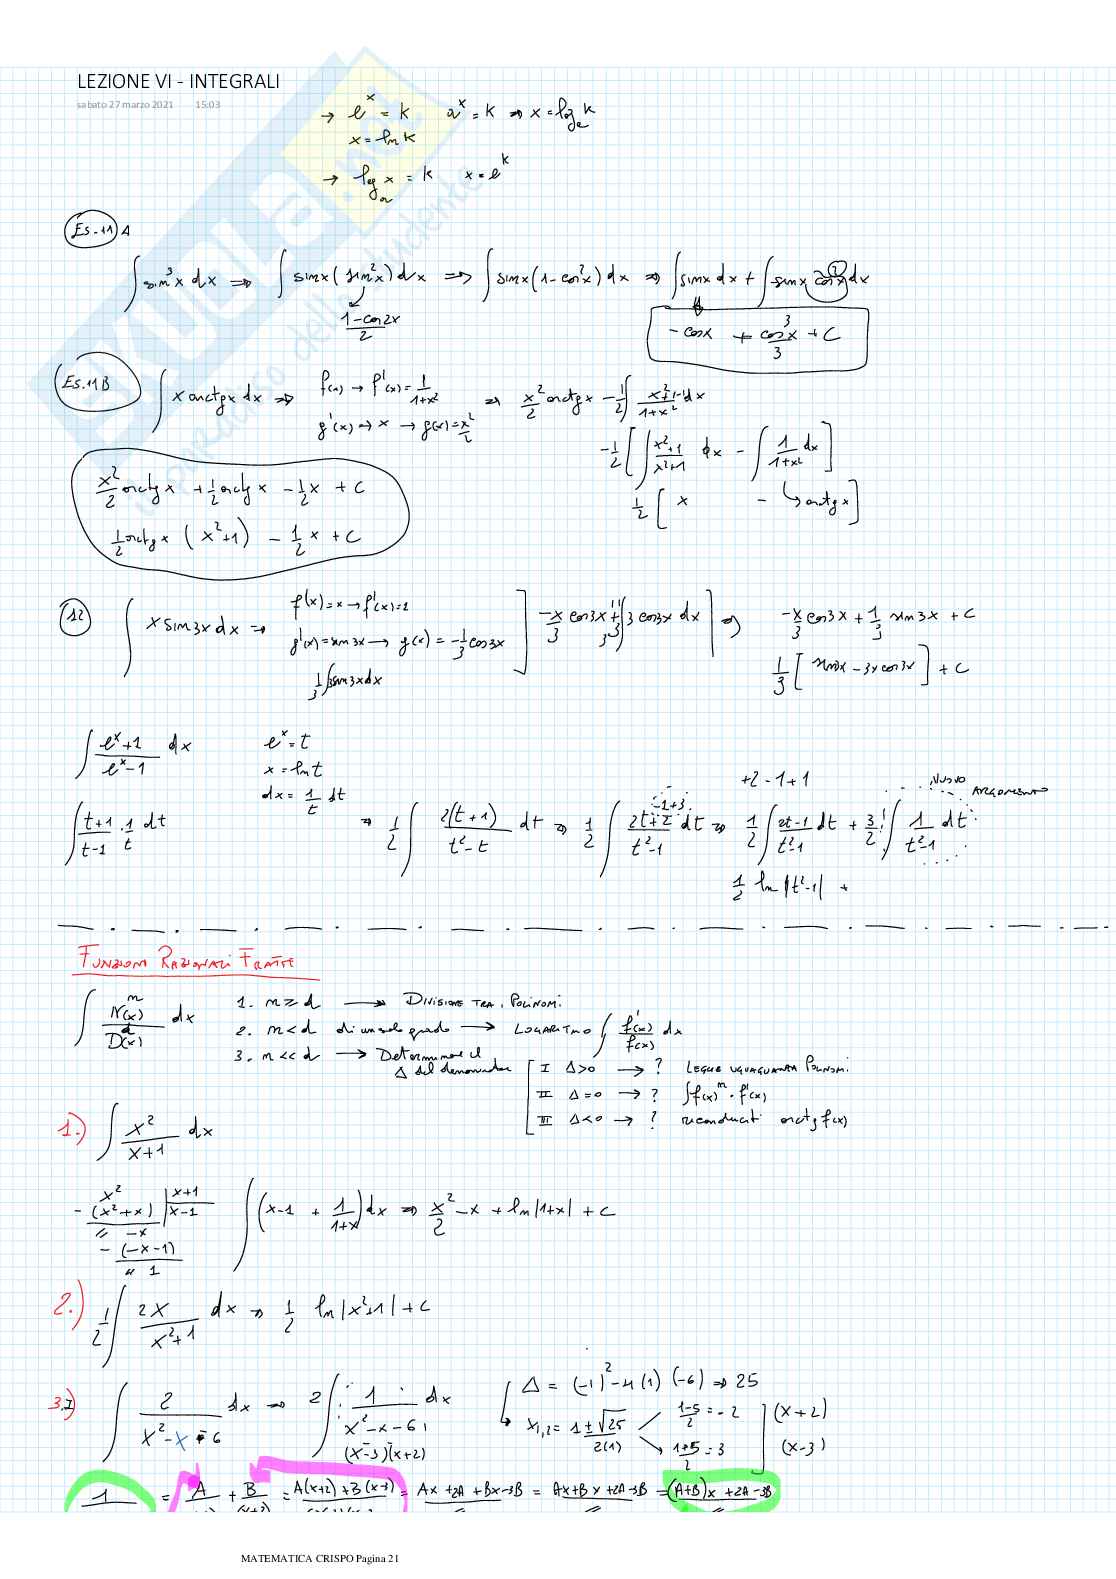 LEZIONE VI - INTEGRALI
sabato 27 marzo 2021 15:03
→ e^x = k   a^x = k ⇒ x = log_a k
x = ln k
→ log_a x = k   x = e^k
Es. 11 A
∫ sin³x dx ⇒ ∫ sinx (sin²x) dx ⇒ ∫ sinx (1-cos²x) dx ⇒ ∫ sinx dx + ∫ sinx cos²x dx
(1-cos2x)/2
-cosx + cos³x/3 + C
Es. 11 B
∫ x arctgx dx ⇒ f(x) → f'(x) = 1/(1+x²) ⇒ x²/2 arctgx - 1/2 ∫ (x²+1-1)/(1+x²) dx
g'(x) → x → g(x) = x²/2
-1/2 [ ∫ (x²+1)/(x²+1) dx - ∫ 1/(1+x²) dx ]
1/2 [ x - arctgx ]
x²/2 arctgx + 1/2 arctgx - 1/2 x + C
1/2 arctgx (x²+1) - 1/2 x + C
12
∫ x sin3x dx ⇒ f(x) = x → f'(x) = 1
g'(x) = sin3x → g(x) = -1/3 cos3x
1/3 ∫ 3sin3x dx
-x/3 cos3x + 1/3 · 1/3 ∫ 3 cos3x dx ⇒ -x/3 cos3x + 1/3 sin3x + C
1/3 [ sin3x - 3x cos3x ] + C
∫ (e^x+1)/(e^x-1) dx   e^x = t
x = ln t
dx = 1/t dt
∫ (t+1)/(t-1) · 1/t dt ⇒ 1/2 ∫ 2(t+1)/(t²-t) dt ⇒ 1/2 ∫ (2t+2)/(t²-1) dt ⇒ 1/2 ∫ (2t-1)/(t²-1) dt + 3/2 ∫ 1/(t²-1) dt
-1+3
+2-1+1
NUOVO ARGOMENTO
1/2 ln |t²-1| +
FUNZIONI RAZIONALI FRATTE
∫ N(x)^n/D(x)^d dx
1. n ≥ d → DIVISIONE TRA POLINOMI
2. n < d di un solo grado → LOGARITMO ∫ f'(x)/f(x) dx
3. n << d → Determinare il Δ del denominatore
I Δ>0 → ? LEGGE UGUAGLIANZA POLINOMI
II Δ=0 → ? ∫ f(x)^n · f'(x)
III Δ<0 → ? riconducit arctg f(x)
1.) ∫ x²/(x+1) dx
x² | x+1
-(x²+x) | x-1
// -x
-(-x-1)
// 1
∫ (x-1 + 1/(1+x)) dx ⇒ x²/2 - x + ln|1+x| + C
2.) 1/2 ∫ 2x/(x²+1) dx ⇒ 1/2 ln |x²+1| + C
3.I) ∫ 2/(x²-x-6) dx ⇒ 2 ∫ 1/(x²-x-6) dx
(x-3)(x+2)
Δ = (-1)²-4(1)(-6) ⇒ 25
x1,2 = (1±√25)/2(1)
(1-5)/2 = -2   (x+2)
(1+5)/2 = 3   (x-3)
1 = A + B/(x+2) = A(x+2)+B(x-3) = Ax+2A+Bx-3B = Ax+Bx+2A-3B = (A+B)x+2A-3B
MATEMATICA CRISPO Pagina 21
SKUOLA.net
paradiso dello studente